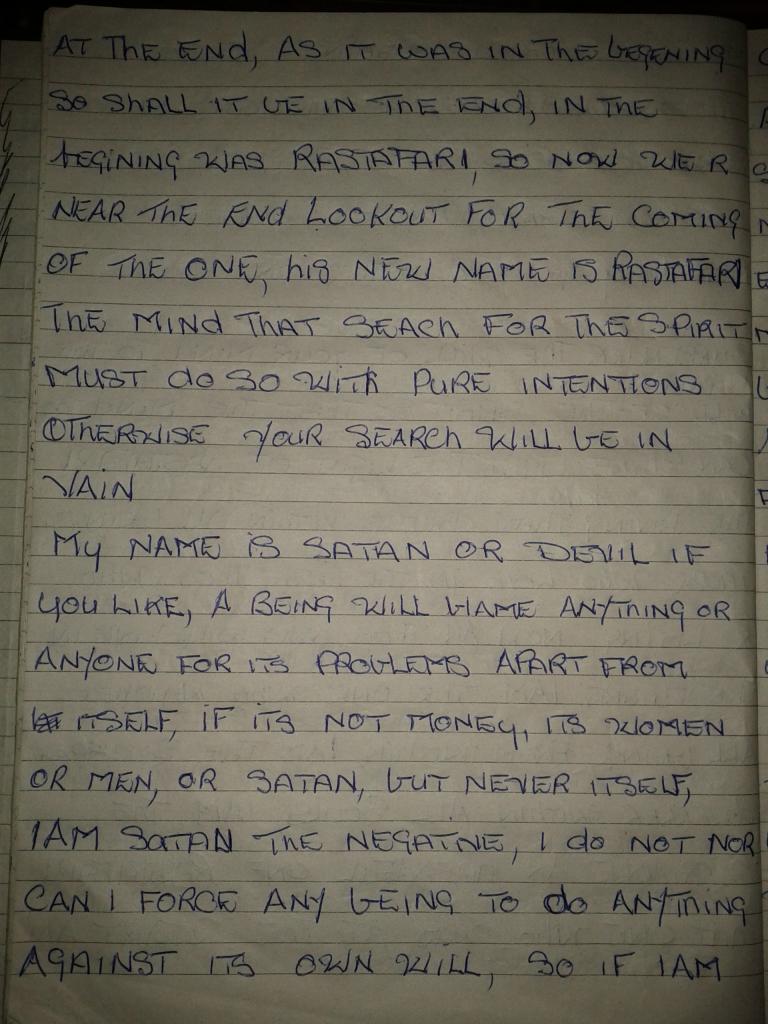 AT The End, AS IT WAS IN The begening
So ShALL IT be IN The End, IN The
begining was RASTAFARI, So NOW WE R
NEAR The End LOOKOUT FOR The COMING
OF The ONE, his NEW NAME IS RASTAFARI
The MINd ThAT SEACh FOR The SPIRIT
MUST do SO WITh PURE INTENTIONS
OTHERWISE YOUR SEARCh WILL bE IN
VAIN
My NAME iS SATAN OR DEVIL IF
YOU LIKE, A BEING WILL bLAME ANYThING OR
ANYONE FOR ITS PROBLEMS APART FROM
ITSELF, IF ITS NOT MONEY, ITS WOMEN
OR MEN, OR SATAN, bUT NEVER ITSELF,
I AM SATAN The NEGATIVE, I do NOT NOR
CAN I FORCE ANY bEING TO do ANYThING
AGAINST ITS OWN WILL, SO IF I AM